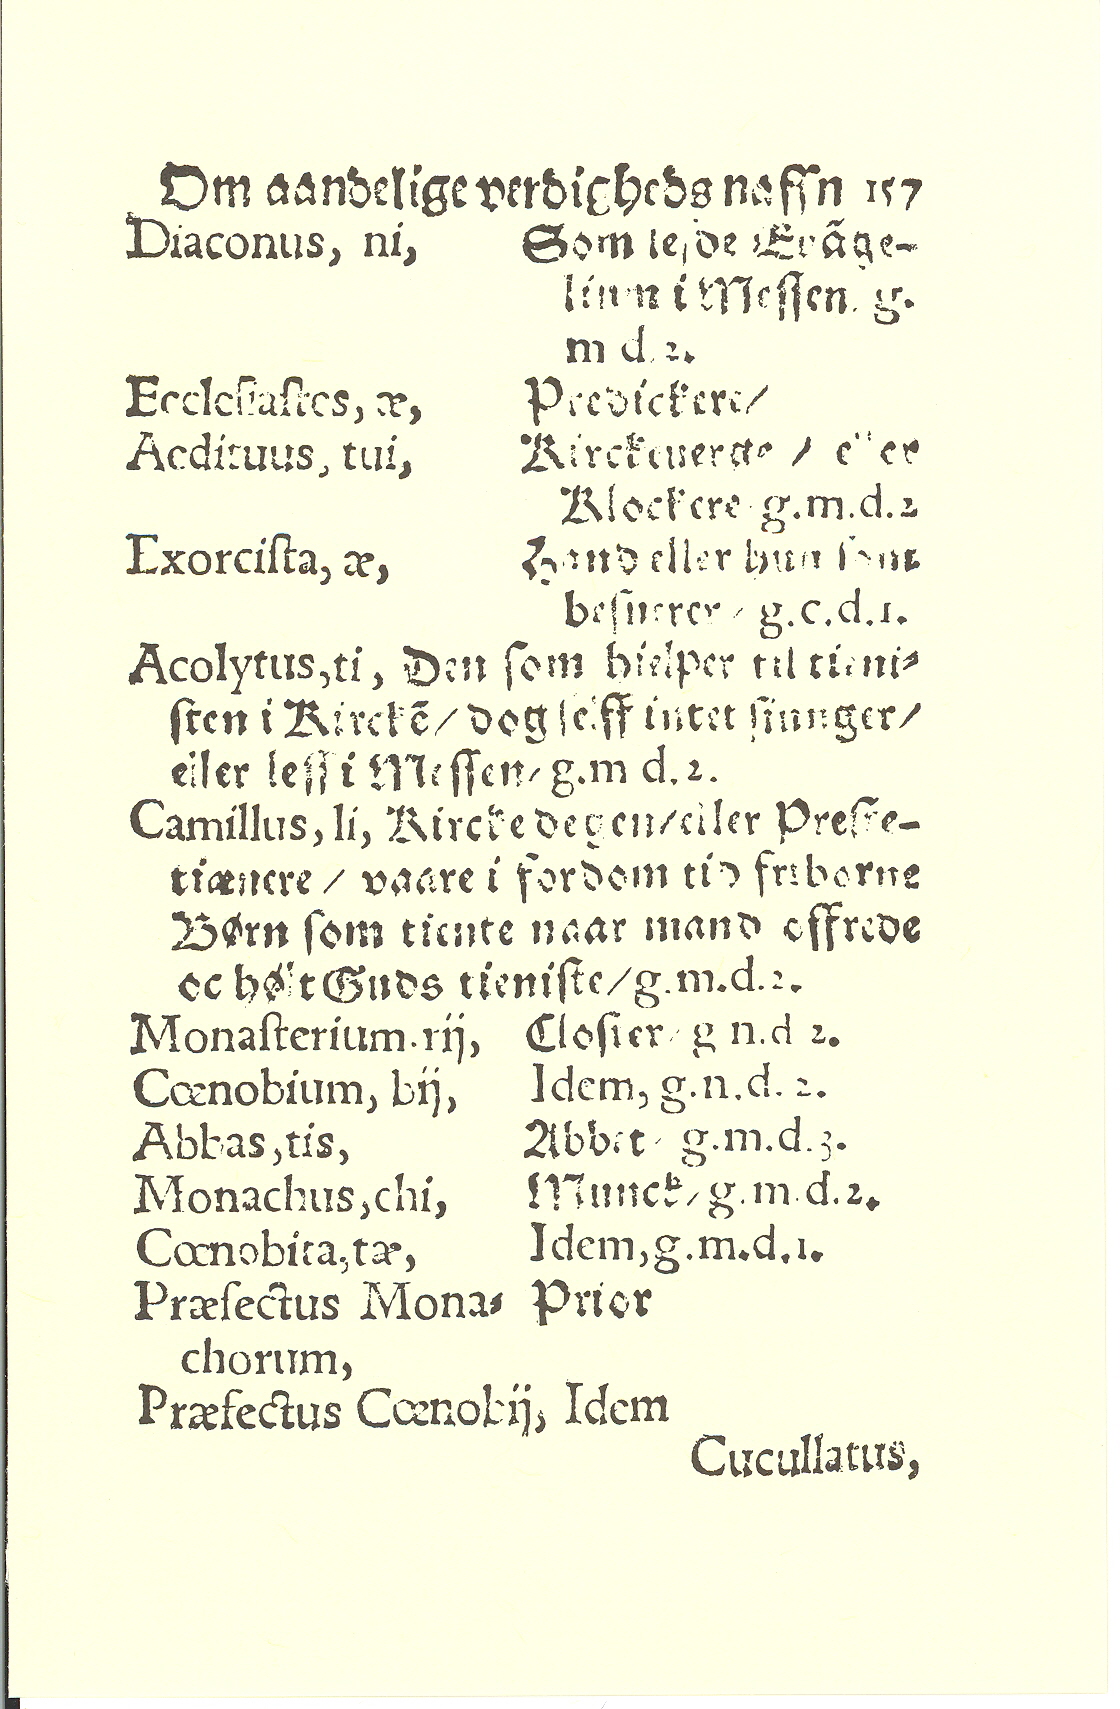 Om aandelige verdigheds naffn 157
Diaconus, ni, Som leſde Evãge-
lium i Meſſen. g.
m d. 2.
Eccleſiaſtes, æ, Predickere/
Aedituus, tui, Kirckeuerge / eller
Klockere g.m.d.2
Exorciſta, æ, Hand eller hun ſom
beſuerer / g.c.d.1.
Acolytus,ti, Den ſom hielper til tieni⸗
ſten i Kirckẽ/ dog ſelff intet ſiunger/
eller leſſ i Meſſen/ g.m d.2.
Camillus, li, Kircke degen/eller Preſte-
tiænere / vaare i fordom tid friborne
Børn ſom tiente naar mand offrede
oc hølt Guds tieniſte/g.m.d.2.
Monaſterium.rij, Cloſter/ g n.d 2.
Cœnobium, bij, Idem, g.n.d. 2.
Abbas,tis, Abbet/ g.m.d.3.
Monachus,chi, Munck/g.m.d.2.
Cœnobita,tæ, Idem,g.m.d.1.
Præfectus Mona⸗ Prior
chorum,
Præfectus Cœnobij, Idem
Cucullatus,